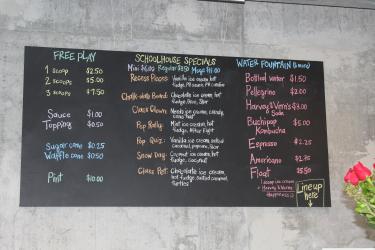 FREE PLAY
1 scoop $2.50
2 scoops $5.00
3 scoops $7.50
Sauce $1.00
Topping $0.50
Sugar cone $0.25
Waffle cone $0.50
Pint $10.00
SCHOOLHOUSE SPECIALS
Mini Regular Mega
Recess Pieces: Vanilla ice cream, hot
fudge, PB
Chalk-olate Board: Chocolate ice cream, hot
fudge,
Class Clown: ice cream,
Pep Rally: Mint ice cream, hot
fudge,
Pop Quiz: Vanilla ice cream, salted
caramel, popcorn,
Snow Day: Coconut ice cream, hot
fudge, coconut
Class Pet: Chocolate ice cream,
hot fudge, salted caramel,
turtles
WATER FOUNTAIN
Bottled water $1.50
Pellegrino $2.00
Harvey & Vern's $3.00
Soda
Buchipop $5.00
Kombucha
Espresso $2.25
Americano $2.75
Float $5.50
1 scoop ice cream
+ Harvey & Verns
Happiness
Line up
here